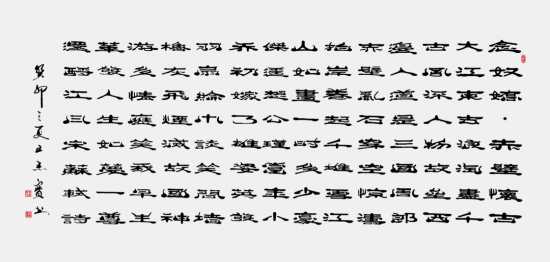 念奴嬌·赤壁懷古
大江東去浪淘盡千
古風流人物故壘西
邊人道是三國周郎
赤壁亂石穿空驚濤
拍岸卷起千堆雪江
山如畫一時多少豪
傑遙想公瑾當年小
喬初嫁了雄姿英發
羽扇綸巾談笑間墻
櫓灰飛煙滅故國神
游多情應笑我早生
華發人生如夢一尊
還酹江月宋蘇軾詩
癸卯之夏